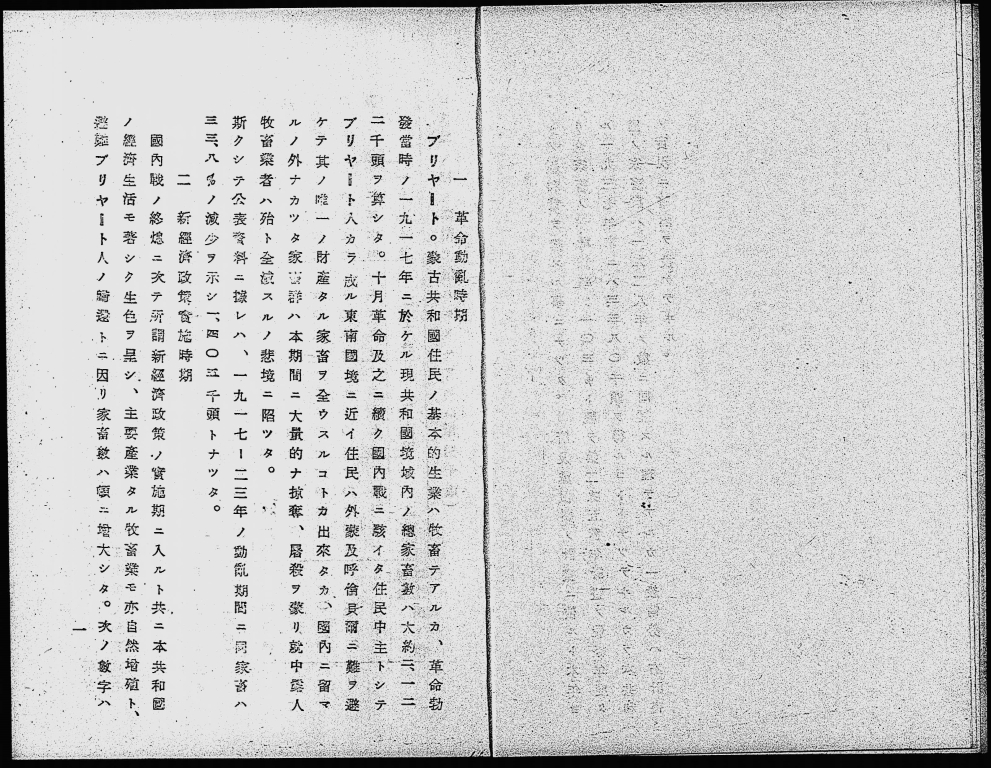 一 革命動亂時期
ブリヤート。蒙古共和國住民ノ基本的生業ハ牧畜テアルカ、革命勃
發當時ノ一九一七年ニ於ケル現共和國境域內ノ總家畜數ハ大約二、一二
二千頭ヲ算シタ。十月革命及之ニ續ク國內戰ニ駭イタ住民中主トシテ
ブリヤート人カラ成ル東南國境ニ近イ住民ハ外蒙及呼倫貝爾ニ難ヲ避
ケテ其ノ唯一ノ財產タル家畜ヲ全ウスルコトカ出來タカ、國內ニ留マ
ルノ外ナカツタ家畜群ハ本期間ニ大量的ナ掠奪、屠殺ヲ蒙リ就中露人
牧畜業者ハ殆ト全滅スルノ悲境ニ陷ツタ。
斯クシテ公表資料ニ據レハ、一九一七ー二三年ノ動亂期間ニ同家畜ハ
三三、八%ノ減少ヲ示シ一、四〇三千頭トナツタ。
二 新經濟政策實施時期
國內戰ノ終熄ニ次テ所謂新經濟政策ノ實施期ニ入ルト共ニ本共和國
ノ經濟生活モ著シク生色ヲ呈シ、主要產業タル牧畜業モ亦自然增殖ト、
避難ブリヤート人ノ歸還トニ因リ家畜數ハ頓ニ增大シタ。次ノ數字ハ
一